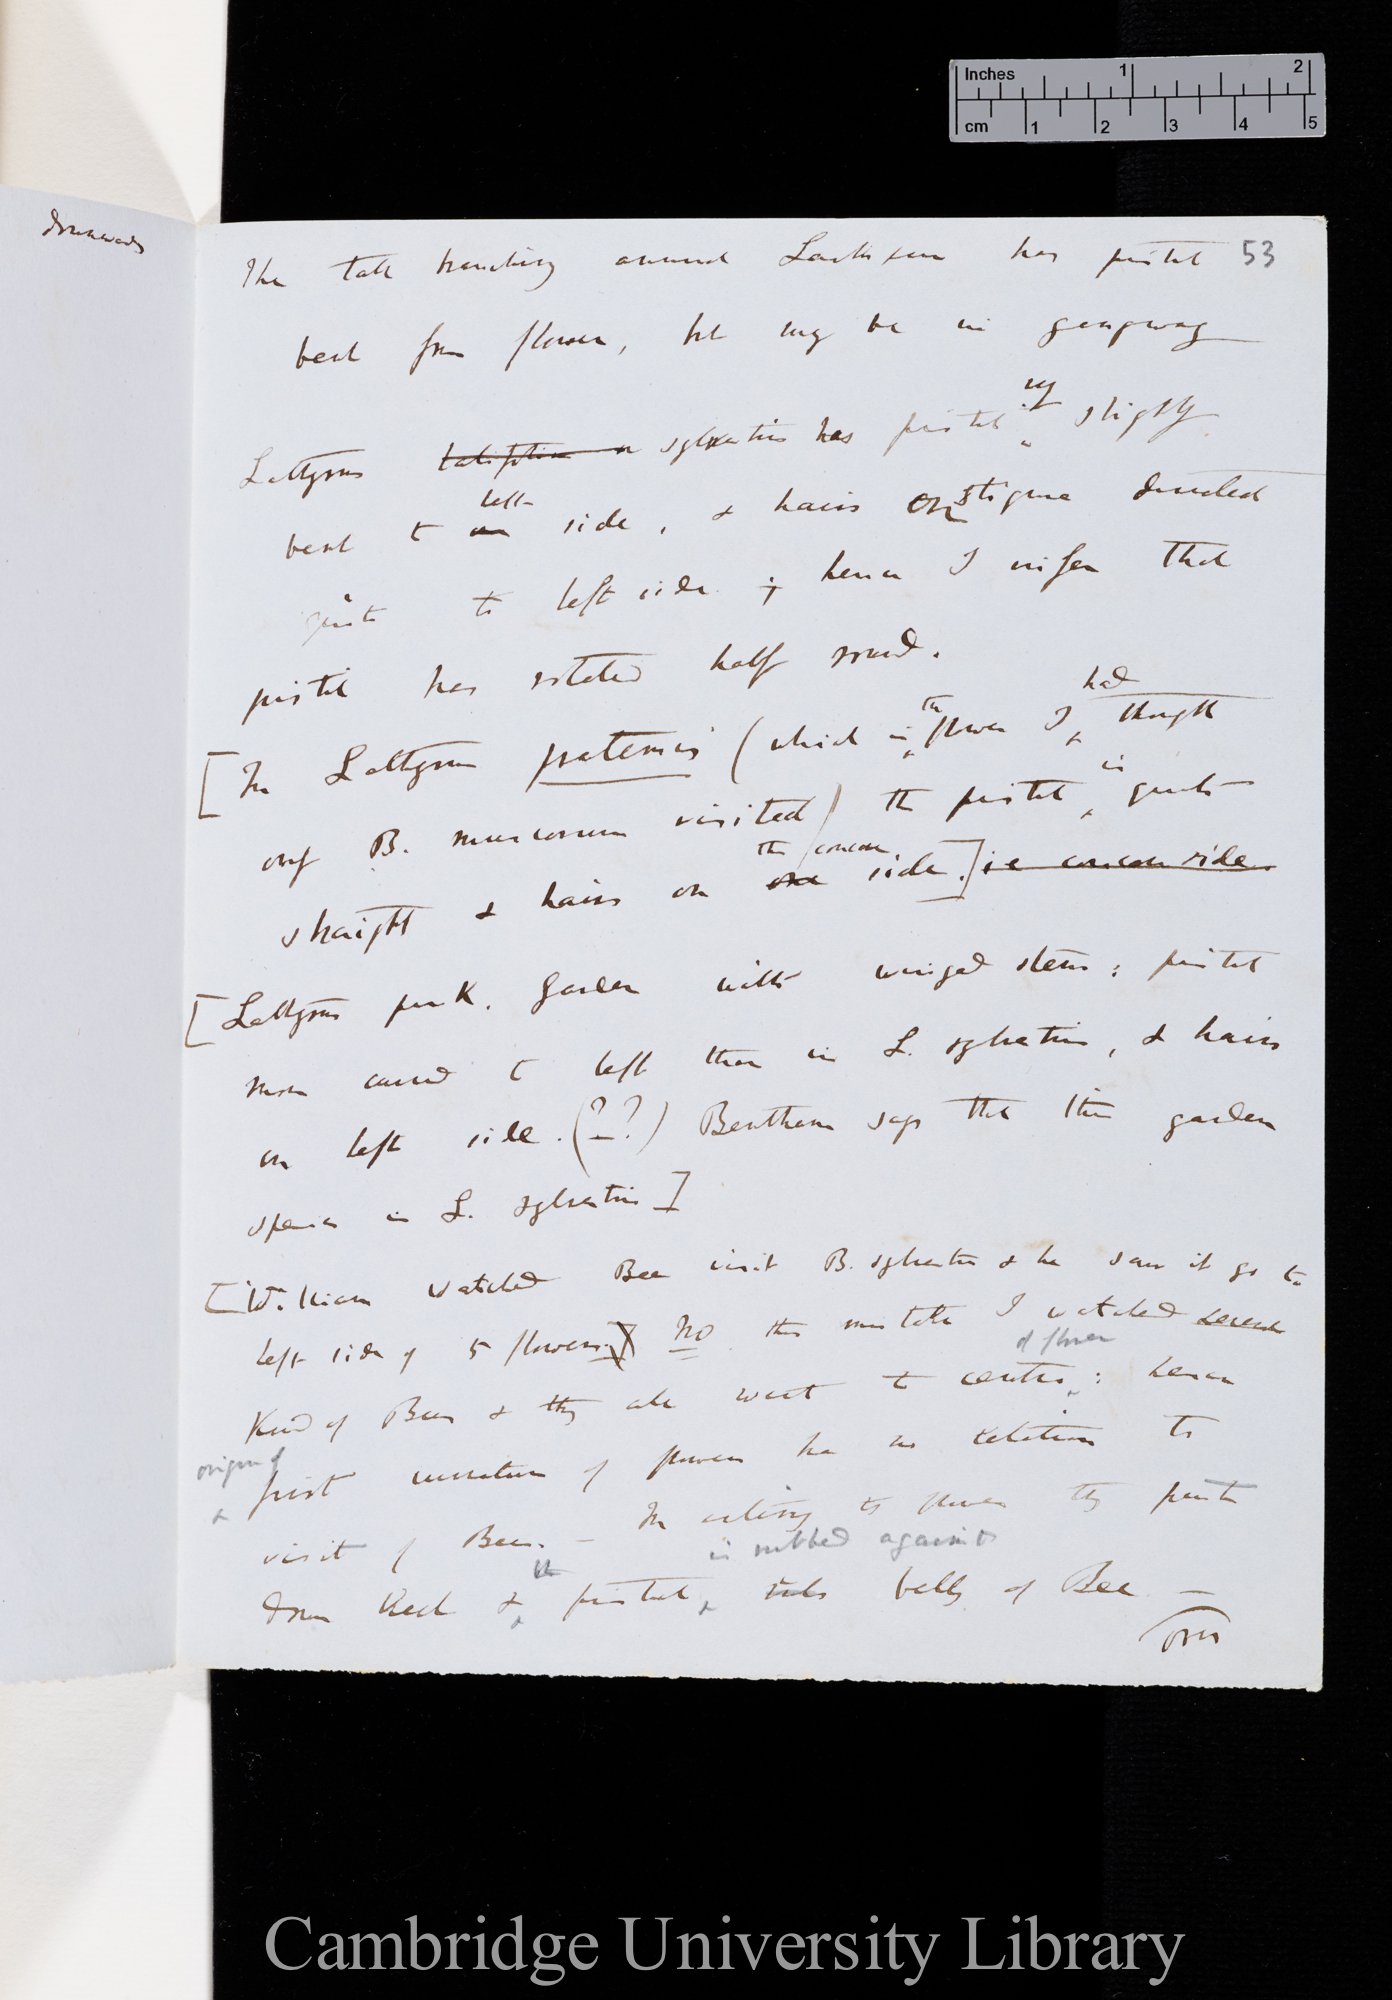 downwards
53
The tall branching annual Larkspur has pistil
bent from flower, but may be in gangway
Lathyrus latifolius sylvestris has pistil very slightly
bent to left side, & hairs on stigma directed
quite to left side; hence I infer that
pistil has rotated half round.
[In Lathyrus pratensis (which in the flower I had thought
only B. muscorum visited) the pistil is quite
straight & hairs on one the concave side.] ie concave side
[Lathyrus pink. Garden with winged stem: pistil
more curved to left than in L. sylvestris, & hairs
on left side. (??) Bentham says that this garden
species is L. sylvestris]
[William watched Bee visit B. sylvestris & he saw it go to
left side of 5 flowers.] No this mistake I watched several
Kind of Bees & they all went to centre of flower: hence
origin of & first curvature of flowers has no relation to
visit of Bees. — In alighting the flower they push
down Keel & the pistil is rubbed against belly of Bee —
over
Inches 1 2
cm 1 2 3 4 5
Cambridge University Library